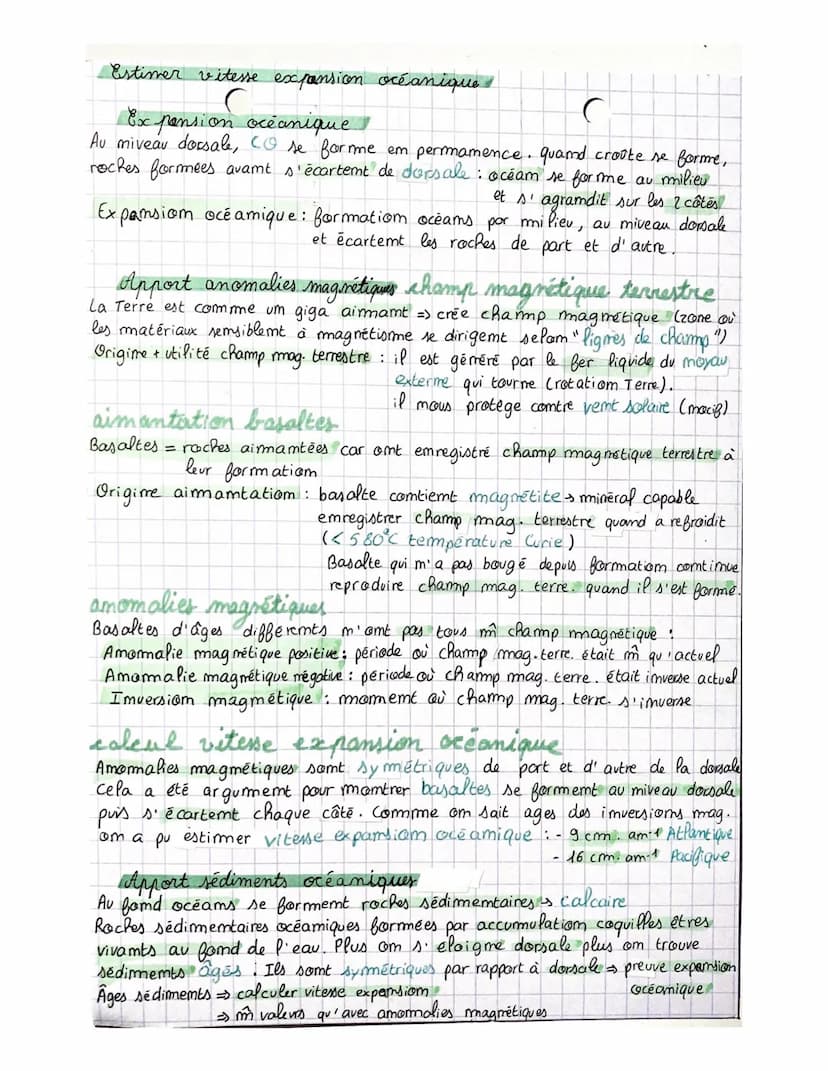 Estimer vitesse expansion océanique
Expansion océanique
Au niveau dorsale, CO se forme en permanence. quand croûte se forme,
roches formées avant s'écartent de dorsale : océan se forme au milieu
et s'agrandit sur les 2 côtés
Expansion océanique : formation océans par milieu, au niveau dorsale
et écartent les roches de part et d'autre.
Apport anomalies magnétiques champ magnétique terrestre
La Terre est comme un giga aimant ⇒ crée champ magnétique (zone où
les matériaux sensiblent à magnétisme se dirigent selon "lignes de champ")
Origine + utilité champ mag. terrestre : il est généré par le fer liquide du noyau
externe qui tourne (rotation Terre).
il nous protège contre vent solaire (nocif)
aimantation basaltes
Basaltes = roches aimantées car ont enregistré champ magnétique terrestre à
leur formation
Origine aimantation : basalte contient magnétite → minéral capable
enregistrer champ mag. terrestre quand a refroidit
(< 580°C température Curie)
Basalte qui n'a pas bougé depuis formation continue
reproduire champ mag. terre. quand il s'est formé.
anomalies magnétiques
Basaltes d'âges différents n'ont pas tous m̂ champ magnétique :
Anomalie magnétique positive : période où champ mag. terre. était m̂ qu'actuel
Anomalie magnétique négative : période où champ mag. terre. était inverse actuel
Inversion magnétique : moment où champ mag. terre. s'inverse
calcul vitesse expansion océanique
Anomalies magnétiques sont symétriques de part et d'autre de la dorsale
cela a été argument pour montrer basaltes se forment au niveau dorsale
puis s'écartent chaque côté. Comme on sait ages des inversions mag.
on a pu estimer vitesse expansion océanique : - 9 cm. an⁻¹ Atlantique
- 16 cm. an⁻¹ Pacifique
Apport sédiments océaniques
Au fond océans se forment roches sédimentaires → calcaire
Roches sédimentaires océaniques formées par accumulation coquilles êtres
vivants au fond de l'eau. Plus on s'éloigne dorsale plus on trouve
sédiments âgés. Ils sont symétriques par rapport à dorsale ⇒ preuve expansion
océanique
Âges sédiments ⇒ calculer vitesse expansion
⇒ m̂ valeurs qu'avec anomalies magnétiques